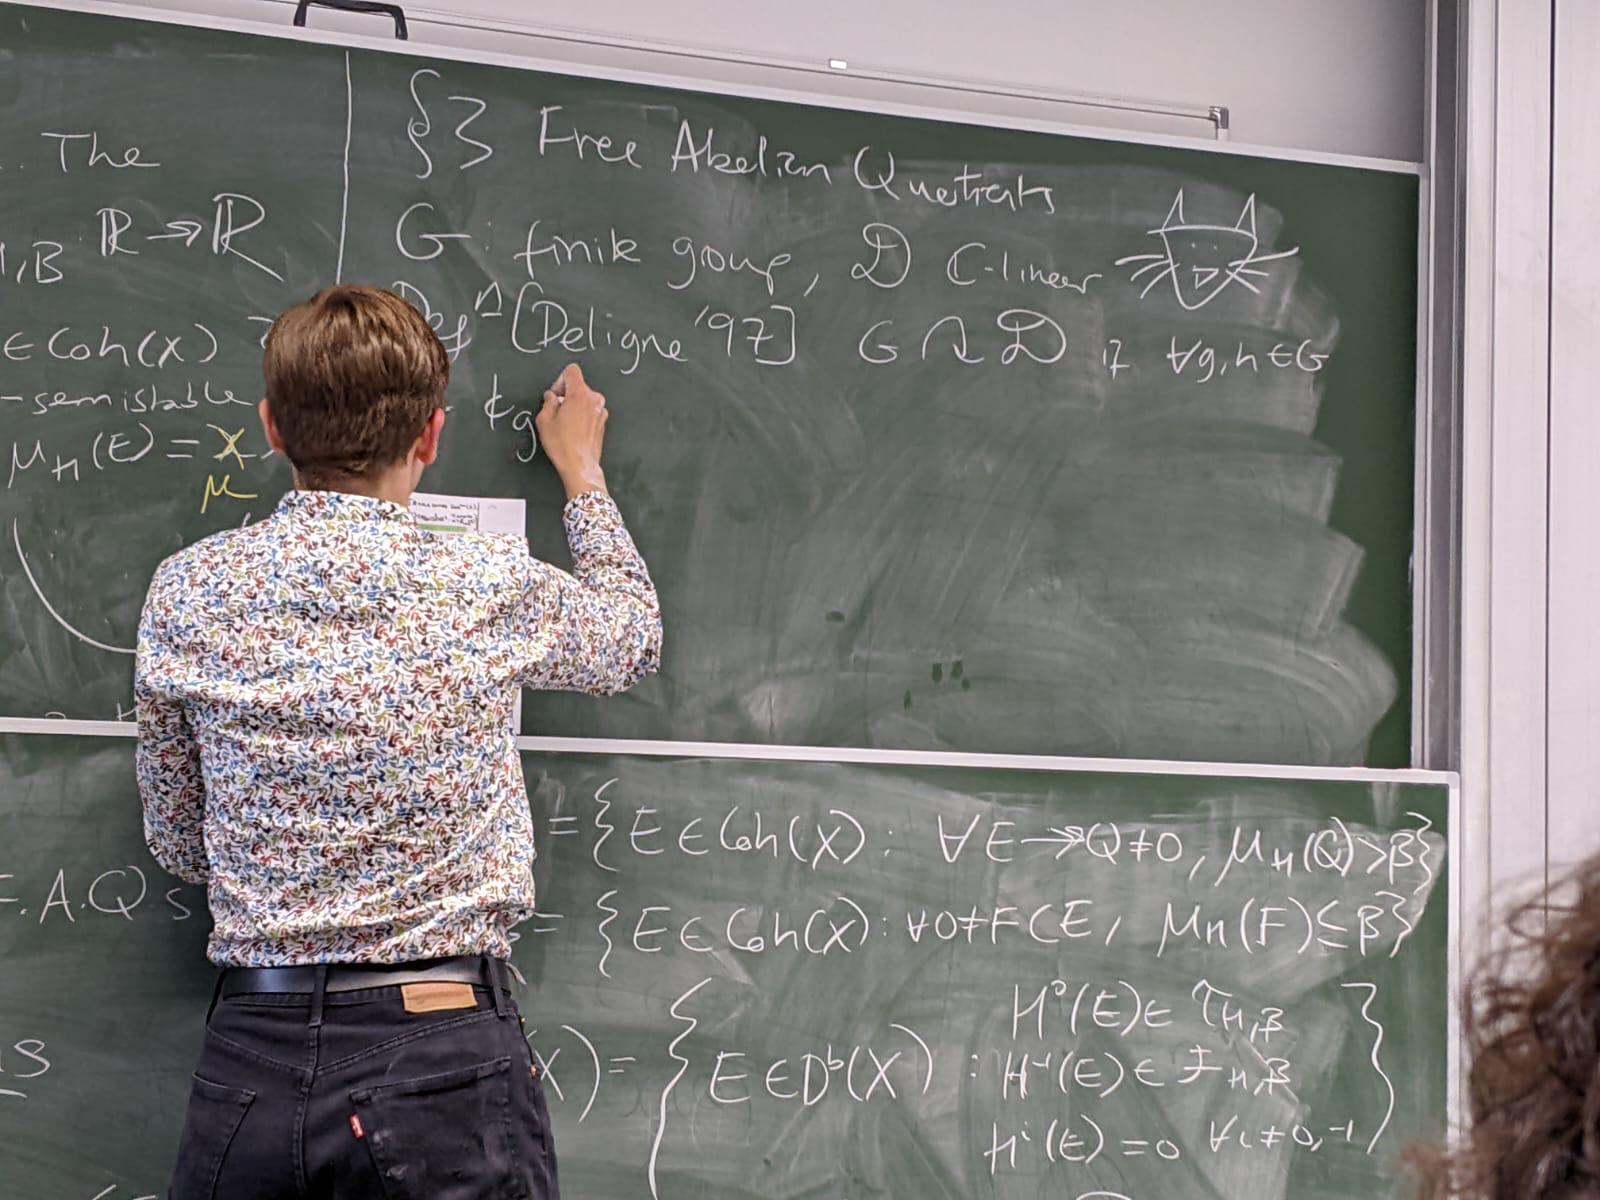 The
ℝ → ℝ
,B
∈ Coh(X)
-semistable
μ_H(E) = X
μ
§3 Free Abelian Quotients
G: finite group, 𝒟 ℂ-linear
Defⁿ [Deligne '97] G ↷ 𝒟 if ∀g,h∈G
ϕg
F.A.Qs
= {E ∈ Coh(X): ∀E ↠ Q ≠ 0, μ_H(Q) > β}
= {E ∈ Coh(X): ∀0≠F⊂E, μ_H(F) ≤ β}
X) = {E ∈ D^b(X) : H⁰(E) ∈ 𝒯_H,β
H⁻¹(E) ∈ ℱ_H,β
Hⁱ(E) = 0 ∀i≠0,-1}